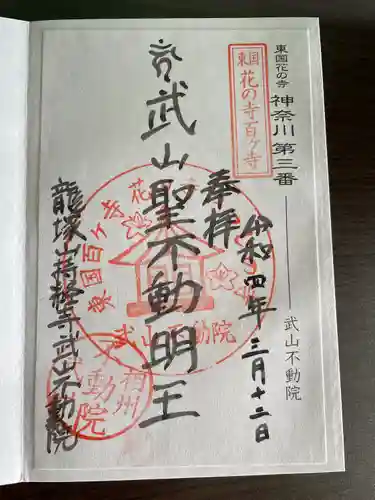 東国花の寺 神奈川 第三番 武山不動院
東国
花の寺百ヶ寺
奉拝
令和四年三月十二日
武山聖不動明王
龍塚山持経寺武山不動院
花
東国百ヶ寺
武山不動院
相州
不動院